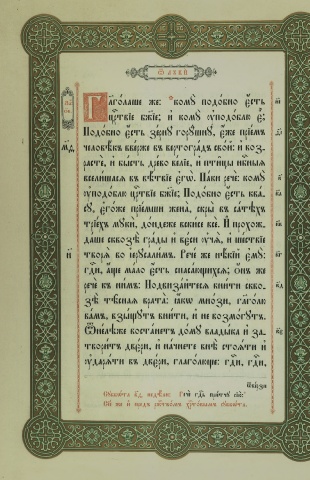 Ѿ лꙋкѝ
Гл҃голаше же: комꙋ̀ подобно є҆́сть
црⷭ҇твїе бж҃їе; и҆ комꙋ̀ ᲂу҆подоблю є҆̀
Подобно є҆́сть зернꙋ̀ горꙋшнꙋ, є҆́же прїе́мь
человѣ́къ вве́рже въ вертогра́дъ сво́й: и҆ воз
растѐ, и҆ бы́сть дре́во ве́лїе, и҆ пти́цы нбⷭ҇ныѧ
всели́шасѧ въ вѣ́твїе є҆гѡ̀. Па́ки речѐ: комꙋ̀
ᲂу҆подо́блю црⷭ҇твїе бж҃їе; Подо́бно є҆́сть ква́
сꙋ, є҆го́же прїе́мши жена̀, скры̀ въ са́тѣхъ
трїе́хъ мꙋкѝ, до́ндеже вски́се всѐ. И҆ прохож
да́ше сквозѣ̀ гра́ды и҆ ве́си ᲂу҆чѧ̀, и҆ ше́ствїе
творѧ̀ во і҆ерꙋсали́мъ. Рече́ же нѣ́кїй є҆мꙋ̀:
гдⷭ҇и, а҆́ще ма́лѡ є҆́сть спаса́ющихсѧ; ѻ҆́нъ же
речѐ къ ни̑мъ: Подвиза́йтесѧ вни́ти сквоз
зѣ̀ тѣ̑снаѧ врата̀: ꙗ҆́кѡ мно́зи, гл҃гол
ва́мъ, взы́щꙋтъ вни́ти, и҆ не возмо́гꙋтъ.
Ѿне́лѣже воста́нетъ до́мꙋ влады́ка и҆ за
твори́тъ две́ри, и҆ начне́те внѣ̀ стоѧ́ти и҆
ᲂу҆дарѧ́ти въ две́ри, глаго́люще: гдⷭ҇и, гдⷭ҇и,